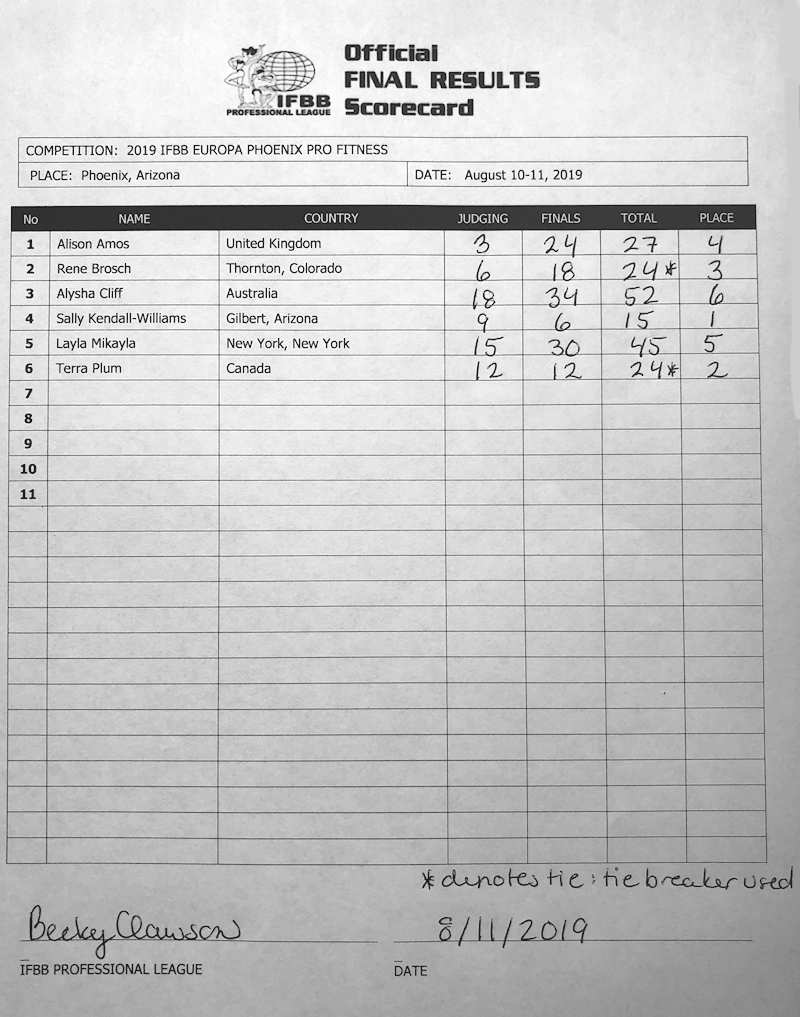 Official
FINAL RESULTS
Scorecard
IFBB
PROFESSIONAL LEAGUE
COMPETITION: 2019 IFBB EUROPA PHOENIX PRO FITNESS
PLACE: Phoenix, Arizona DATE: August 10-11, 2019
No NAME COUNTRY JUDGING FINALS TOTAL PLACE
1 Alison Amos United Kingdom 3 24 27 4
2 Rene Brosch Thornton, Colorado 6 18 24* 3
3 Alysha Cliff Australia 18 34 52 6
4 Sally Kendall-Williams Gilbert, Arizona 9 6 15 1
5 Layla Mikayla New York, New York 15 30 45 5
6 Terra Plum Canada 12 12 24* 2
7
8
9
10
11
* denotes tie : tie breaker used
Becky Clawson 8/11/2019
IFBB PROFESSIONAL LEAGUE DATE